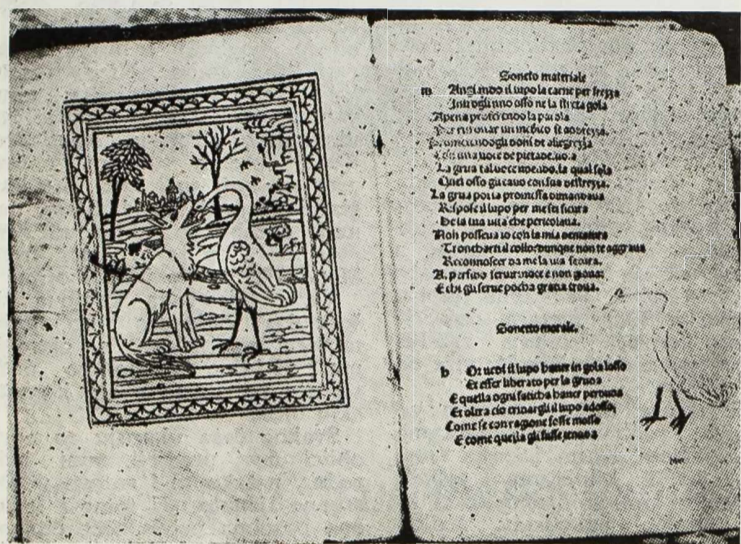 Soneto materiale
m Angiando il lupo la carne per frezza
osso ne la stricta gola
Apena proferendo la parola
Per
doni de aliegrezza
Con una voce de
La grua tal voce la qual sola
Quel osso gli cavo con sua destrezza.
La grua poi la promissa dimandava
Rispose il lupo per me sei sicura
De la tua vita che pericolava.
Non posseva io con la mia dentatura
Troncharti il collo: dunque non te aggrava
Reconnoscer da me la tua
A. perfido servir noce e non giova:
E chi gli serve pocha gratia trova.
Sonetto morale.
h Or vedi il lupo haver in gola losso
Et esser liberato per la grua
E quella ogni faticha haver perduta
Et oltra cio il lupo adosso,
Come se con ragione fosse mosso
E come quella gli fusse